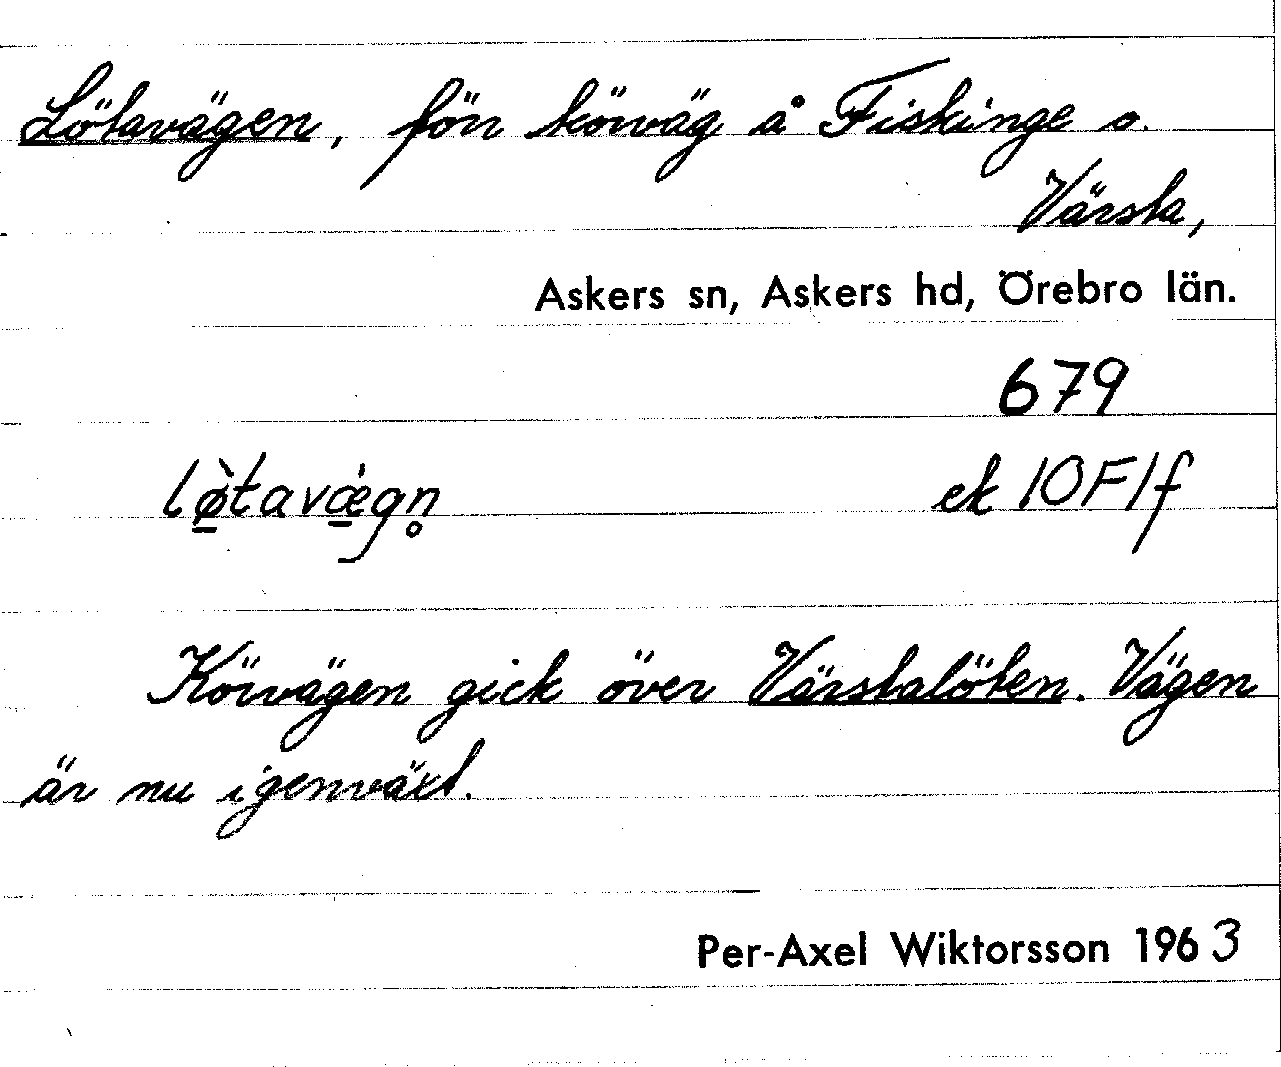 Lötavägen, förr körväg å Fiskinge o.
Värsta,
Askers sn, Askers hd, Örebro län.
679
lø̀tavǽgn̥ ek 10F1f
Körvägen gick över Värstalöten. Vägen
är nu igenväxt.
Per-Axel Wiktorsson 1963